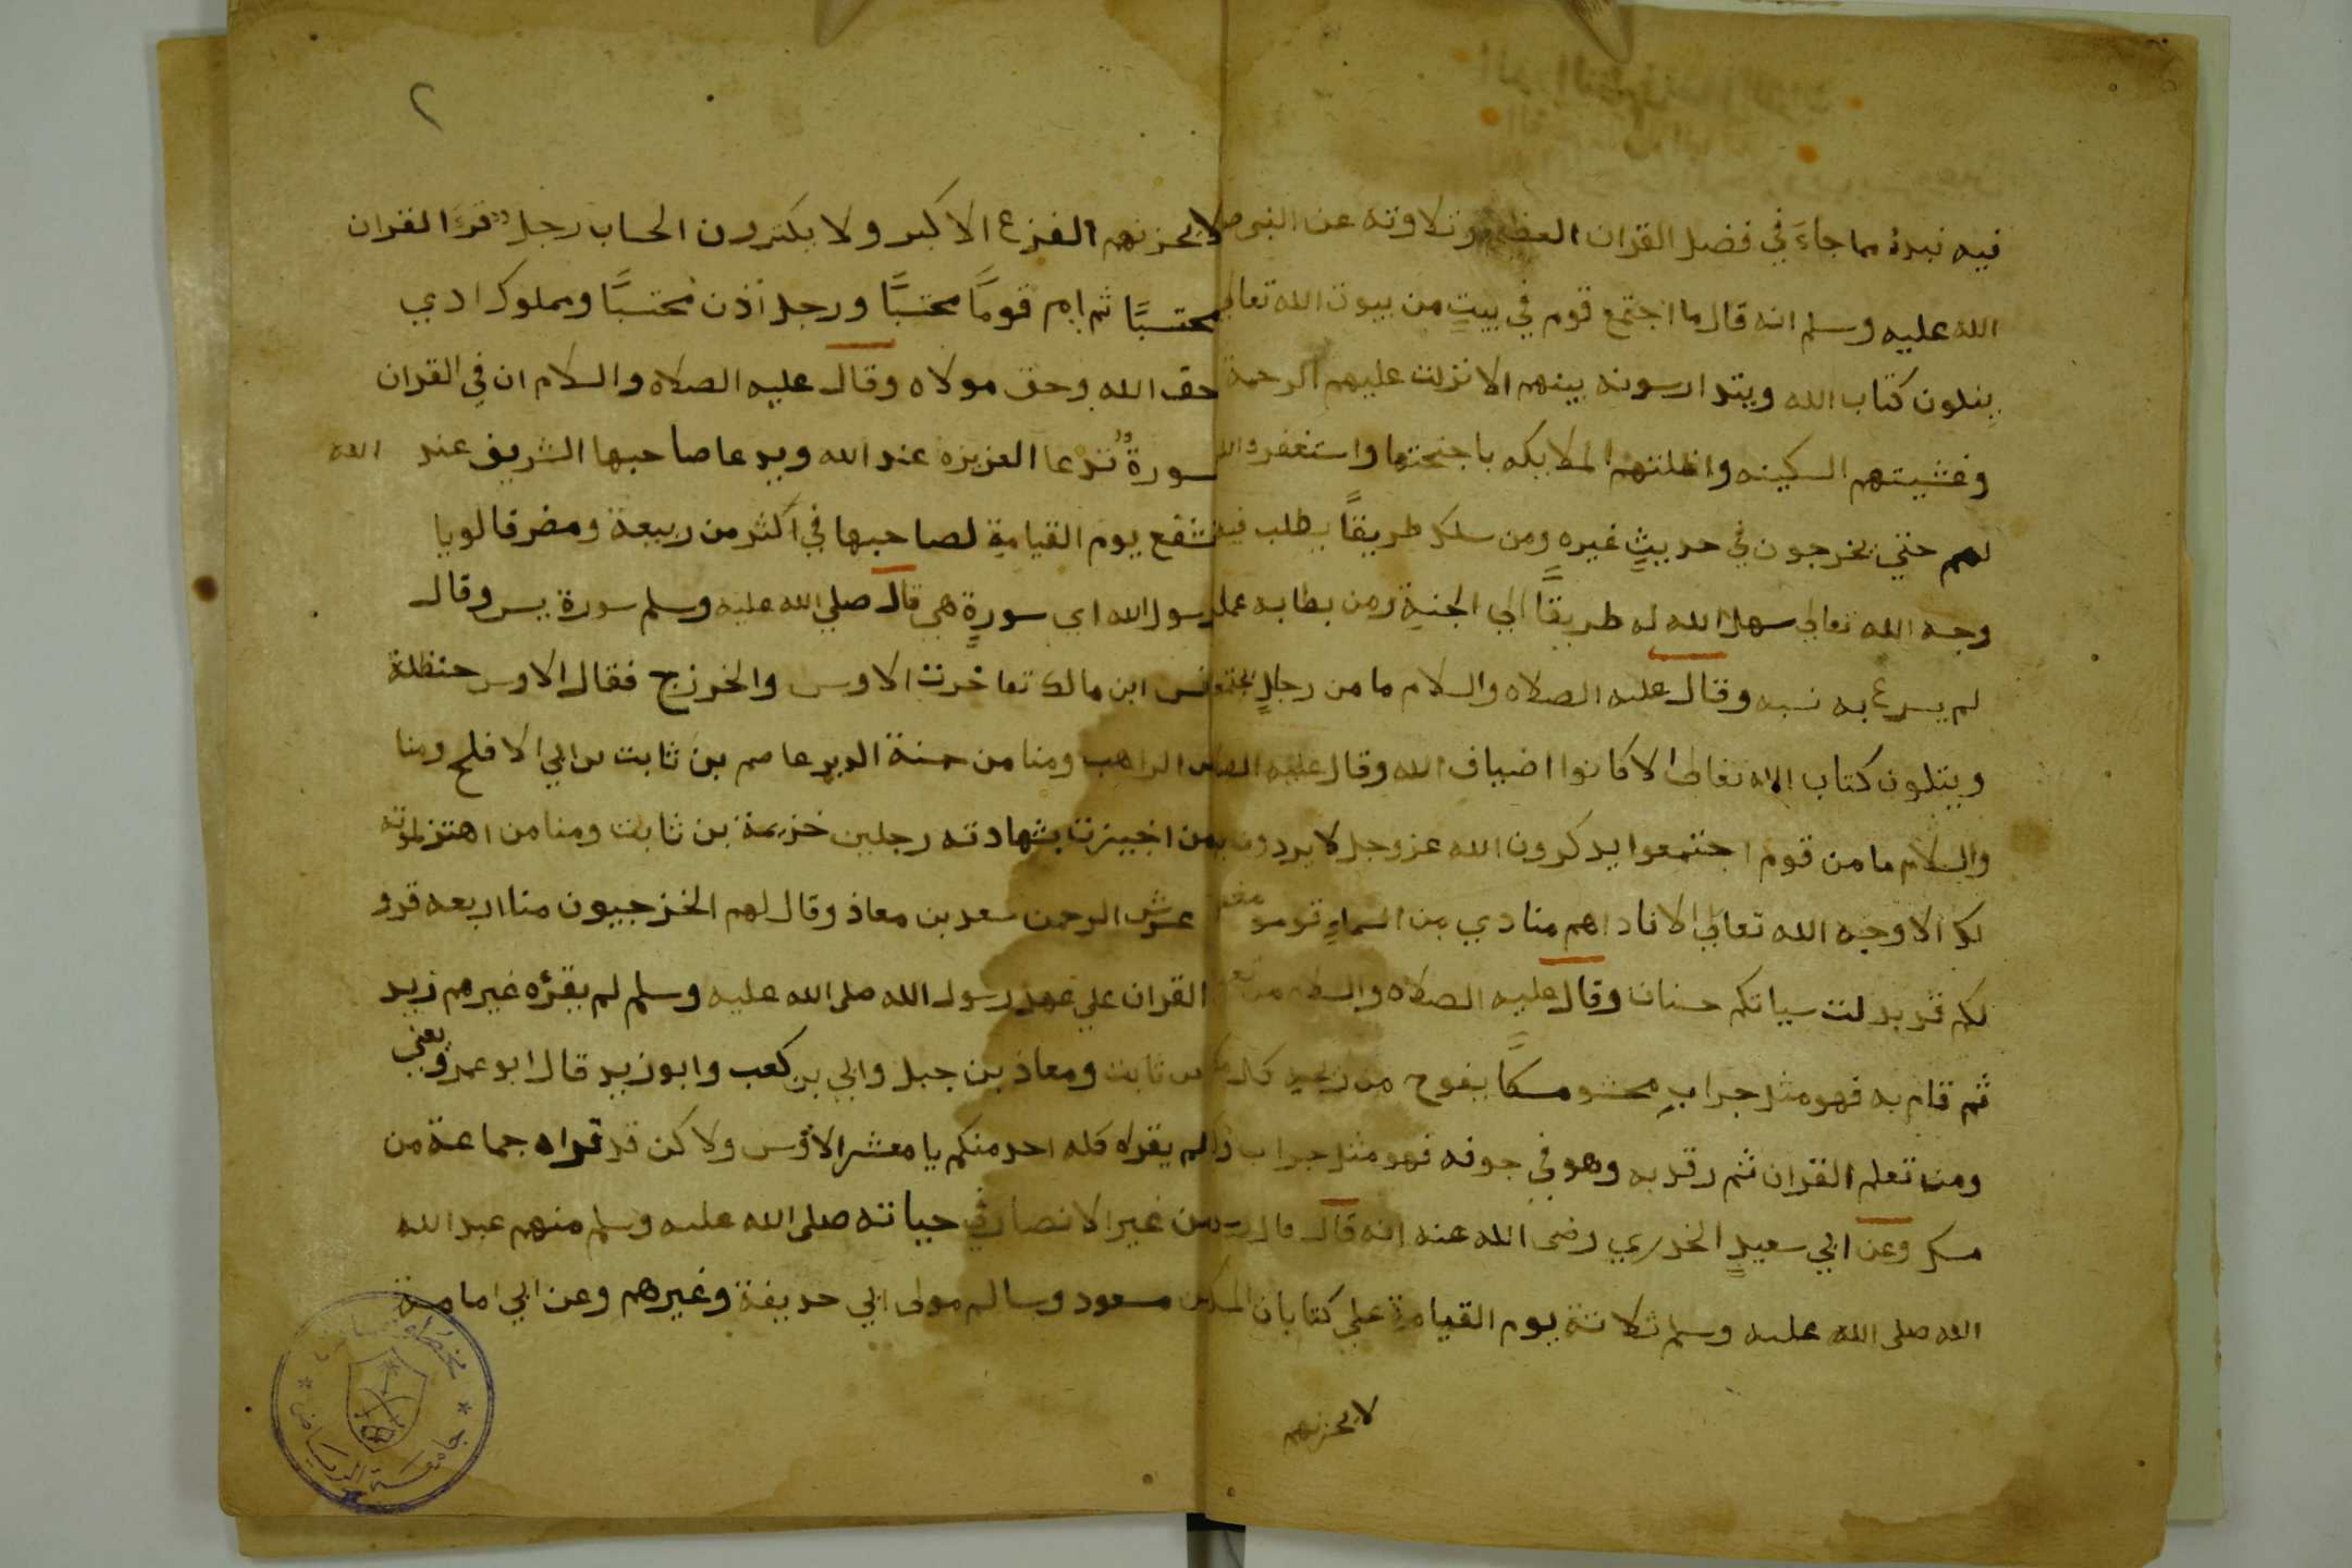 فيه نبدة مما جاءَ في فضل القران العظيم وتلاوته عن النبي صلى
الله عليه وسلم انه قال ما اجتمع قوم في بيتٍ من بيوت الله تعالى
يتلون كتاب الله ويتدارسونه بينهم الا نزلت عليهم الرحمة
وغشيتهم السكينه واظلتهم الملايكه باجنحتها واستغفروا الله
لهم حتي يخرجون في حديثٍ غيره ومن سلك طريقاً يطلب فيه
وجه الله تعالى سهل الله له طريقاً الي الجنة ومن بطا به عمله
لم يسرع به نسبه وقال عليه الصلاه والسلام ما من رجلٍ
ويتلون كتاب الله تعالى الا كانوا اضياف الله وقال عليه الصلاه
والسلام ما من قوم اجتمعوا يدكرون الله عز وجل لا يردون
الا وجه الله تعالى الا ناداهم منادي من السماءِ قوموا مغفور
لكم قد بدلت سياتكم حسنات وقال عليه الصلاه والسلام من تعلم
ثم قام به فهو مثل جرابٍ محشو مسكاً يفوح من ريحه كل
ومن تعلم القران ثم رقد به وهو في جوفه فهو مثل جراب
مسك وعن ابي سعيدٍ الخدري رضى الله عنه انه قال قال رسول
الله صلى الله عليه وسلم ثلاثة يوم القيامة على كثبان المسك
لا يحزنهم
٢
لا يحزنهم الفزع الاكبر ولا يكترون الحساب رجل قرَءَ القران
محتسبًا ثم ام قومًا محتسبًا ورجل اذن محتسبًا ومملوك ادي
حق الله وحق مولاه وقال عليه الصلاه والسلام ان في القران
سورةٌ تدعا العزيزة عند الله ويدعا صاحبها الشريف عند الله
تشفع يوم القيامة لصاحبها في اكثر من ربيعة ومضر قالو يا
رسول الله اي سورةٍ هي قال صلي الله عليه وسلم سورة يس وقال
انس ابن مالك تفاخرت الاوس والخزرج فقال الاوس حنظلة
الراهب ومنا من حمته الدبر عاصم بن ثابت بن ابي الافلح ومنا
من اجيزت بشهادته رجلين خزيمة بن ثابت ومنا من اهتز لموته
عرش الرحمن سعد بن معاذ وقال لهم الخزرجيون منا اربعه قرو
القران علي عهد رسول الله صلى الله عليه وسلم لم يقرٔه غيرهم زيد
بن ثابت ومعاذ بن جبل وابي بن كعب وابو زيد قال ابو عمر ويعني
لم يقراه كله احد منكم يا معشر الاوس ولا كن قد قراه جماعة من
من غير الانصار في حياته صلى الله عليه وسلم منهم عبد الله
بن مسعود وسالم مولى ابي حديفة وغيرهم وعن ابي امامة
جامعة الرياض